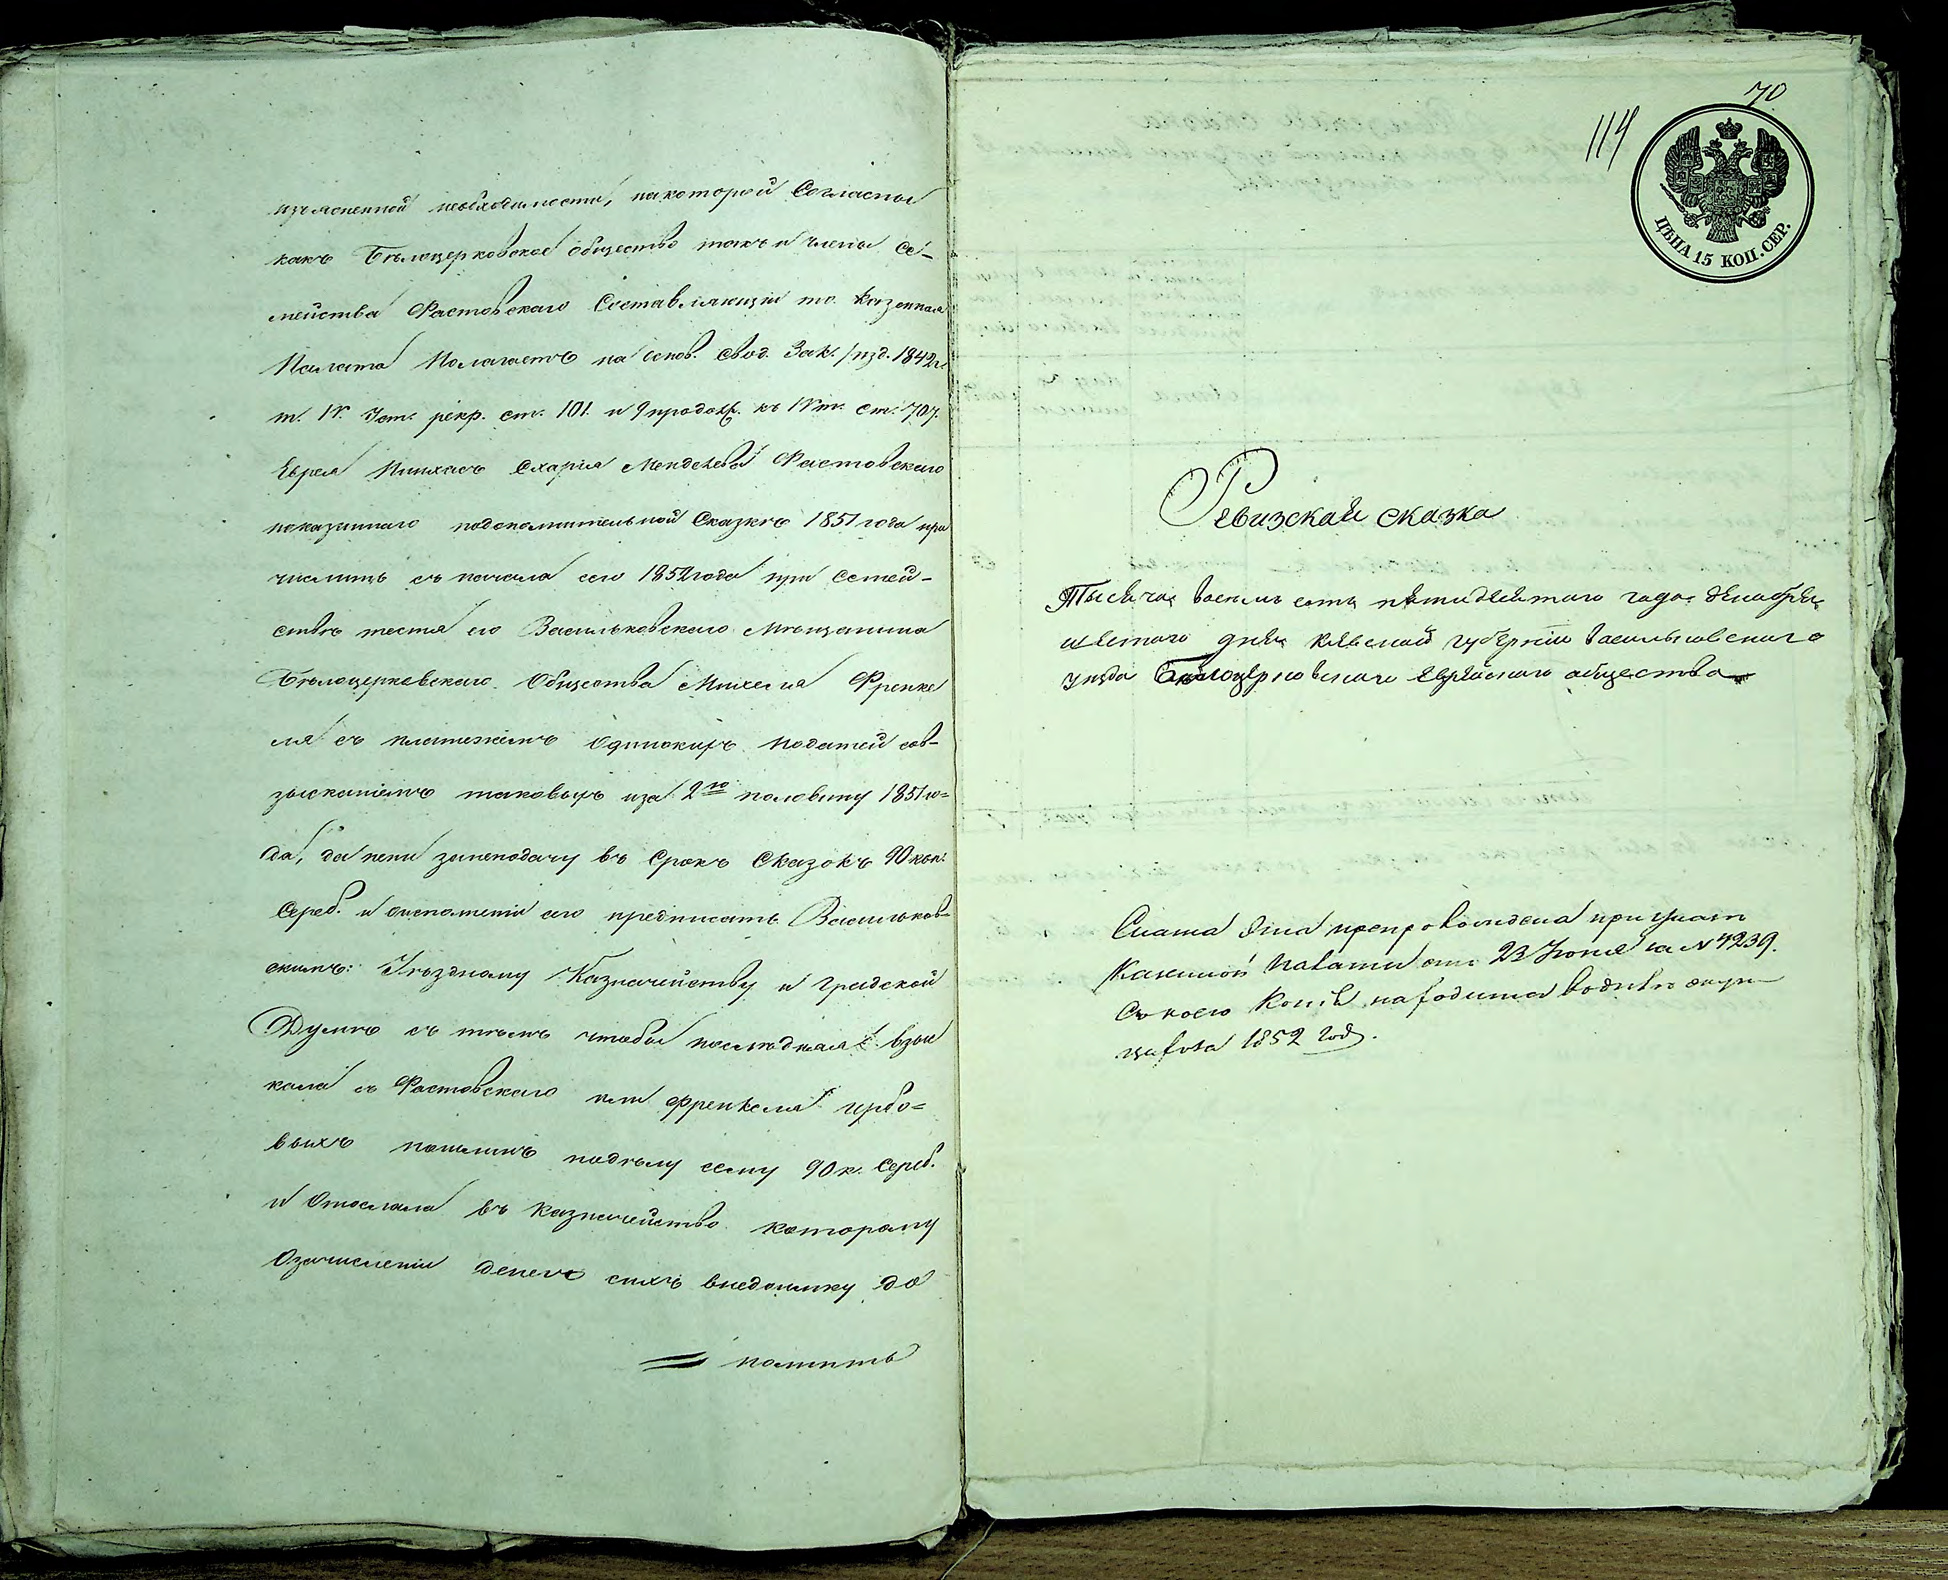 изъясненной необходимости, на которой Согласны
какъ Бѣлоцерковское Общество такъ и члены Се-
мейства Фастовскаго Составляющія то. Казенная
Палата Полагаетъ на основ. свод. Зак. /изд. 1842 г.
т. IV. Уст. рекр. ст. 101. и 9 продолж. къ IV т. ст. 707.
Еврея Пинхаса Схарія Менделева Фастовскаго
показаннаго подополнительной Сказкѣ 1851 года при
числить съ начала сего 1852 года при Семей-
ствѣ тестя его Васильковскаго Мѣщанина
Бѣлоцерковскаго Общества Михеля Френке
ля съ платежемъ Одинокихъ податей совъ
зысканіемъ таковыхъ иза 2ю половину 1851 го=
да, да пени занеподачу въ Срокъ Сказокъ 90 коп.
Сереб. и оисполненіи сего предписать Васильков-
скимъ: Уѣздному Казначейству и Градской
Думѣ съ тѣмъ чтобы послѣдняя взы
скала съ Фастовскаго или Френкеля гербо=
выхъ пошлинъ подѣлу сему 90 к. Сереб.
и Отослала въ Казначейство которому
Озачисленіи денегъ сихъ внедоимку до
= полнить
70
114
ЦѢНА 15 КОП. СЕР.
Ревизская сказка
Тысяча восемь сотъ пятидесятаго года декабря
шестаго дня Кіевской губерніи Васильковскаго
уезда Белоцерковскаго Еврейскаго общества
Сказка Эта препровождена при указѣ
Казенной Палаты отъ 23 Іюня за № 4239.
Съ коего Копія находится
1852 года.